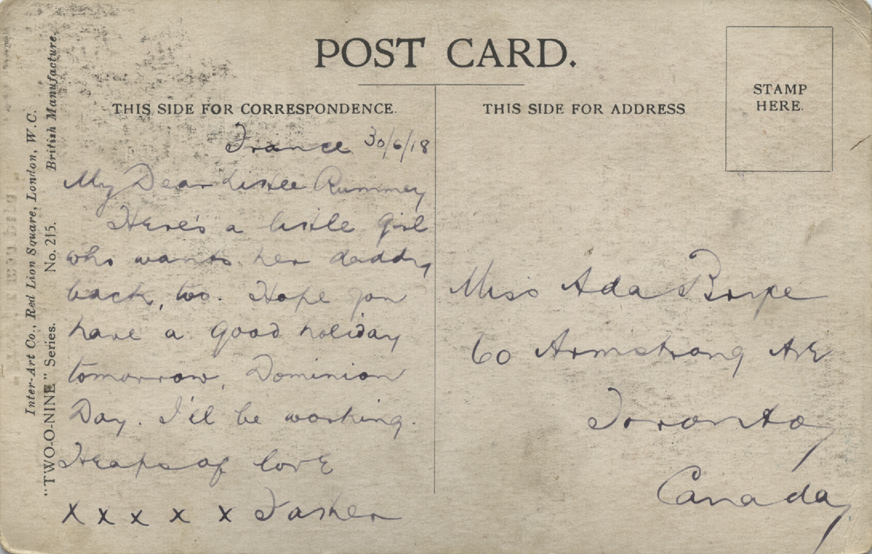 POST CARD.
THIS SIDE FOR CORRESPONDENCE.
THIS SIDE FOR ADDRESS
STAMP
HERE.
Inter-Art Co., Red Lion Square, London, W.C.
"TWO-O-NINE" Series. No. 215. British Manufacture.
France 30/6/18
My Dear Little
Here's a little girl
who wants her daddy
back, too. Hope you
have a good holiday
tomorrow, Dominion
Day. I'll be working.
Heaps of love
x x x x x Father
Miss Ada
60 Armstrong Ave
Toronto
Canada